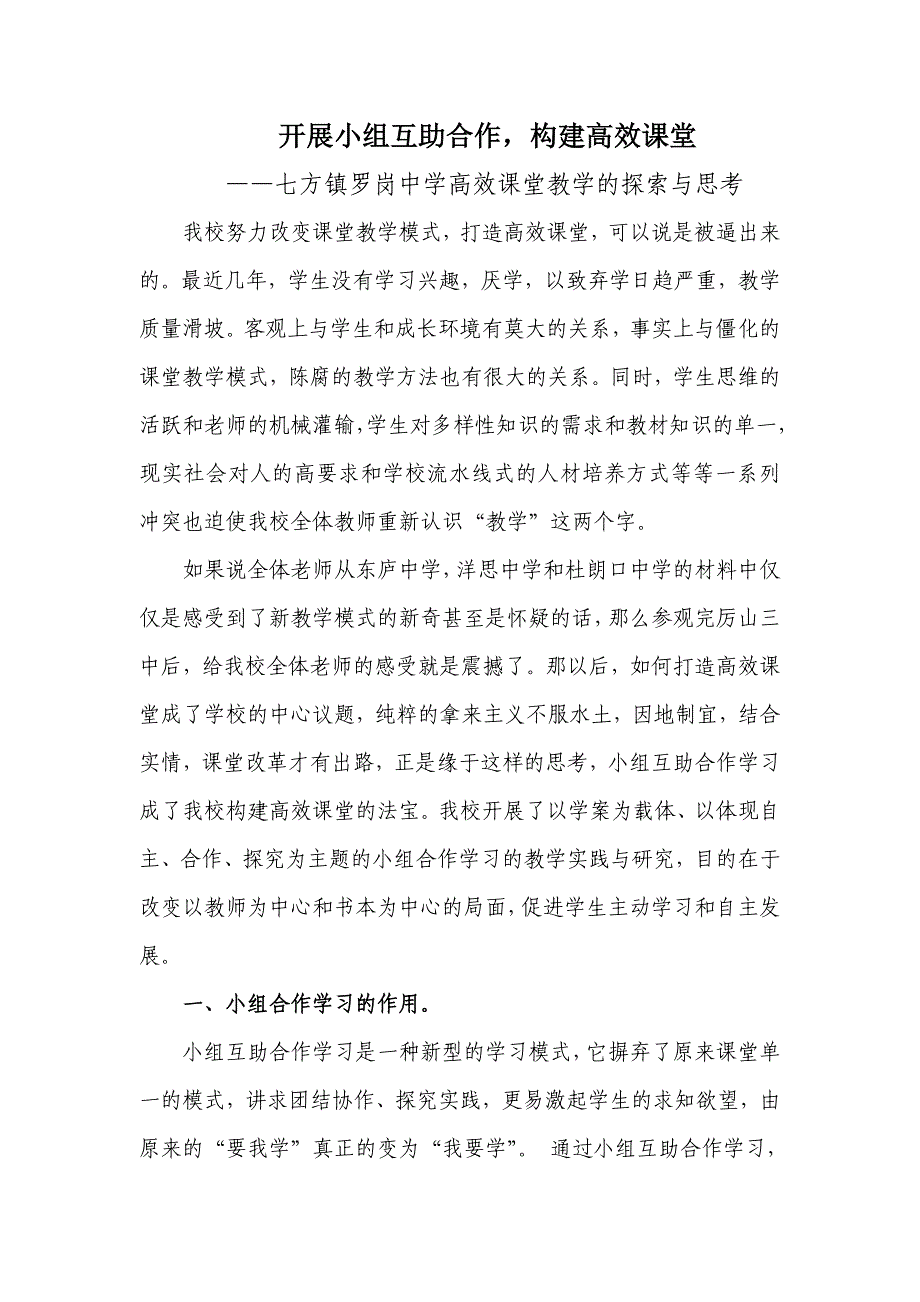 开展小组互助合作，构建高效课堂
——七方镇罗岗中学高效课堂教学的探索与思考
我校努力改变课堂教学模式，打造高效课堂，可以说是被逼出来
的。最近几年，学生没有学习兴趣，厌学，以致弃学日趋严重，教学
质量滑坡。客观上与学生和成长环境有莫大的关系，事实上与僵化的
课堂教学模式，陈腐的教学方法也有很大的关系。同时，学生思维的
活跃和老师的机械灌输，学生对多样性知识的需求和教材知识的单一，
现实社会对人的高要求和学校流水线式的人材培养方式等等一系列
冲突也迫使我校全体教师重新认识“教学”这两个字。
如果说全体老师从东庐中学，洋思中学和杜朗口中学的材料中仅
仅是感受到了新教学模式的新奇甚至是怀疑的话，那么参观完厉山三
中后，给我校全体老师的感受就是震撼了。那以后，如何打造高效课
堂成了学校的中心议题，纯粹的拿来主义不服水土，因地制宜，结合
实情，课堂改革才有出路，正是缘于这样的思考，小组互助合作学习
成了我校构建高效课堂的法宝。我校开展了以学案为载体、以体现自
主、合作、探究为主题的小组合作学习的教学实践与研究，目的在于
改变以教师为中心和书本为中心的局面，促进学生主动学习和自主发
展。
一、小组合作学习的作用。
小组互助合作学习是一种新型的学习模式，它摒弃了原来课堂单
一的模式，讲求团结协作、探究实践，更易激起学生的求知欲望，由
原来的“要我学”真正的变为“我要学”。 通过小组互助合作学习，